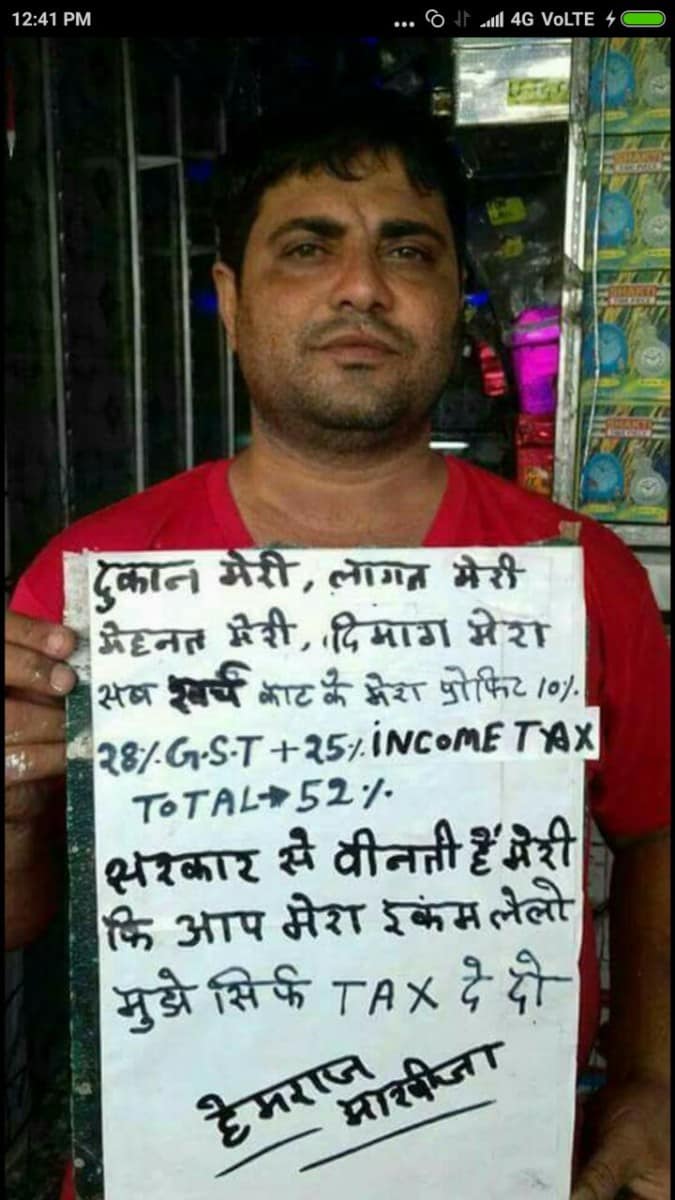 12:41 PM
... 4G VoLTE
SHAKTI
SHAKTI
SHAKTI
दुकान मेरी, लागत मेरी
मेहनत मेरी, दिमाग मेरा
सब खर्च काट के मेरा प्रोफिट 10%.
28%.G.S.T + 25%.INCOME TAX
TOTAL→52%.
सरकार से वीनती हैं मेरी
कि आप मेरा इकंम लेलो
मुझे सिर्फ TAX दे दो
हेमराज